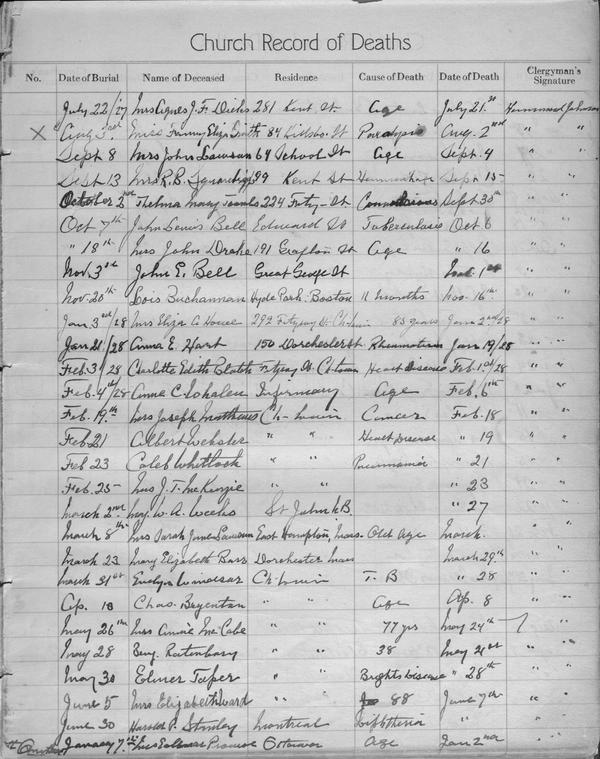 Church Record of Deaths
No. Date of Burial Name of Deceased Residence Cause of Death Date of Death Clergyman's Signature
July 22/27 Mrs Agnes J. F. Dicks 281 Kent St Age July 21st Hammond Johnson
X Aug 3rd Miss Fanny Eliza Smith 84 St Paralysis Aug. 2nd " "
Sept 8 Mrs John Lawson 64 School St Age Sept. 4 " "
Sept 13 Mrs R. B. 99 Kent St Hemorrhage Sept 15 " "
October 2nd Thelma Mary 224 Fitzy St Convulsions Sept 30th " "
Oct 7th John Lewis Bell Edward St Tuberculosis Oct 6 " "
" 18th Mrs John Drake 191 Grafton St Age " 16 " "
Nov. 3rd John E. Bell Great George St 1st " "
Nov. 20th Lois Buchannan Hyde Park Boston 11 months Nov. 16th " "
Jan 3rd/28 Mrs Eliza A House 292 Fitzroy St Ch-town 83 years Jan 2nd/28 " "
Jan 21/28 Anna E. Hart 150 Dorchester St Rheumatism Jan 19/28 " "
Feb 3/28 Charlotte Edith Fitzroy St Ch-town Heart Disease Feb. 1st/28 " "
Feb. 4th/28 Anna C Infirmary Age Feb. 6th " "
Feb. 19th Mrs Joseph Matthews Ch-town Cancer Feb. 18 " "
Feb 21 Albert Webster " " Heart Disease " 19 " "
Feb 23 Caleb Whitlock " " Pneumonia " 21 " "
Feb. 25 Mrs J. T. McKenzie " " " 23 " "
March 2nd W. A. Weeks St John N.B. " 27 " "
March 8th Mrs Sarah Jane Lawson East Hampton, Mass. Old Age March " "
March 23 Mary Elizabeth Barr Dorchester Mass March 29th " "
March 31st Evelyn Ch-town T. B " 28 " "
Ap. 10 Chas. Bryenton " " Age Ap. 8 " "
May 26th Mrs Annie McCabe " " 77 yrs May 24th " "
May 28 Benj. Ratenbury " " 38 May 21st " "
May 30 Elmer Taper " " Brights Disease " 28th " "
June 5 Mrs Elizabeth Ward " " 88 June 7th " "
June 30 Harold P. Montreal Diphtheria " " "
January 7 Mrs Ottawa Age Jan 2nd " "